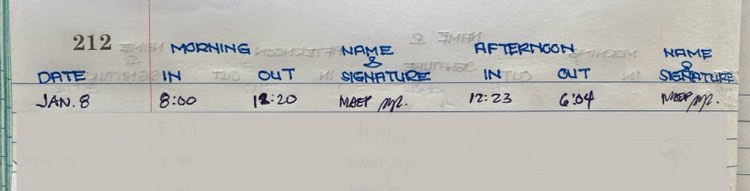 212
MORNING NAME AFTERNOON NAME
& &
DATE IN OUT SIGNATURE IN OUT SIGNATURE
JAN. 8 8:00 12:20 12:23 6:04